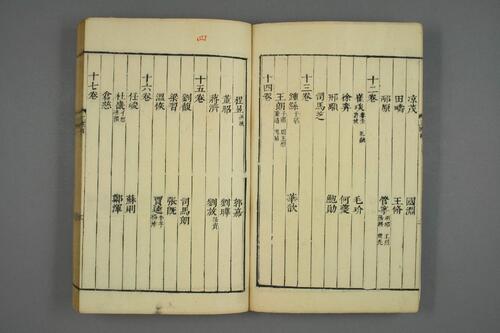 涼茂 國淵
田疇 王脩
邴原 管寧
十二卷
崔琰 毛玠
徐奕 何夔
邢顒 鮑勛
司馬芝
十三卷
鍾繇 子毓 華歆
王朗
十四卷
程昱 郭嘉
董昭 劉曄
蔣濟 劉放 孫資
十五卷
劉馥 司馬朗
梁習 張既
溫恢 賈逵
十六卷
任峻 蘇則
杜畿 鄭渾
倉慈
十七卷